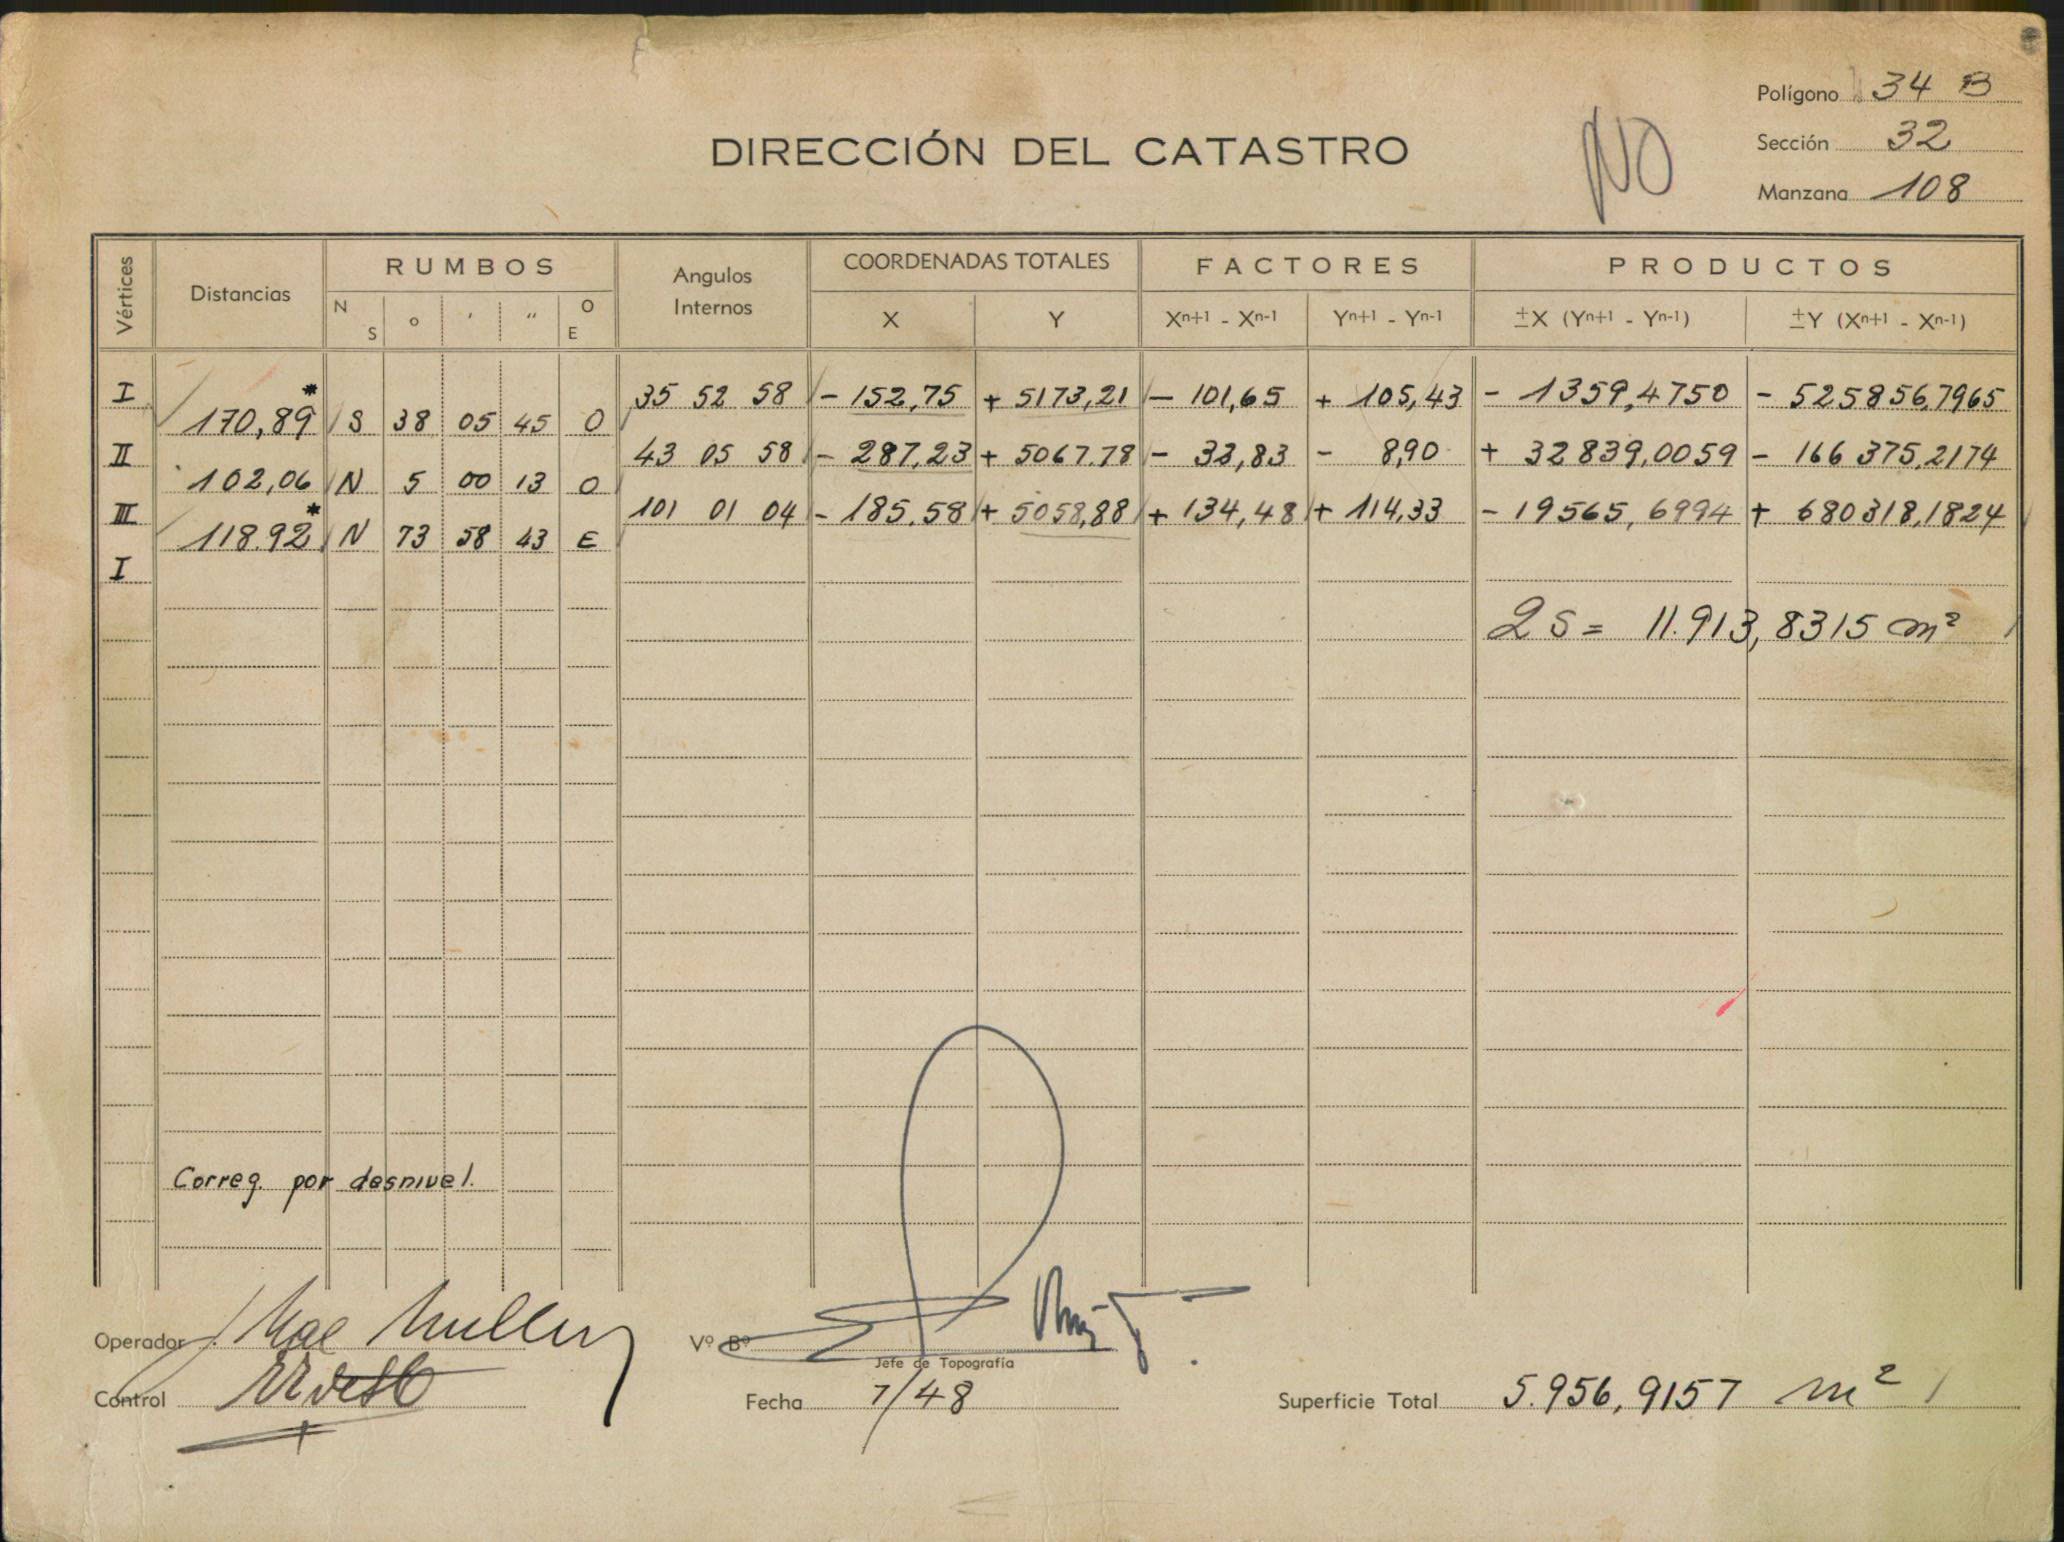 Polígono 34 B
DIRECCIÓN DEL CATASTRO
NO
Sección 32
Manzana 108
Vértices
Distancias
RUMBOS
N S ° ′ ″ O E
Angulos Internos
COORDENADAS TOTALES
X Y
FACTORES
Xn+1 - Xn-1 Yn+1 - Yn-1
PRODUCTOS
±X (Yn+1 - Yn-1) ±Y (Xn+1 - Xn-1)
I 35 52 58 - 152,75 + 5173,21 - 101,65 + 105,43 - 1359,4750 - 525856,7965
170,89* S 38 05 45 O
II 43 05 58 - 287,23 + 5067.78 - 32,83 - 8,90 + 32839,0059 - 166375,2174
102,06 N 5 00 13 O
III 101 01 04 - 185.58 + 5058,88 + 134,48 + 114,33 - 19565,6994 + 680318,1824
118.92* N 73 58 43 E
I
2S = 11.913,8315 m²
Correg. por desnivel.
Operador
Vº Bº
Jefe de Topografía
Control
Fecha 7/48
Superficie Total 5.956,9157 m²